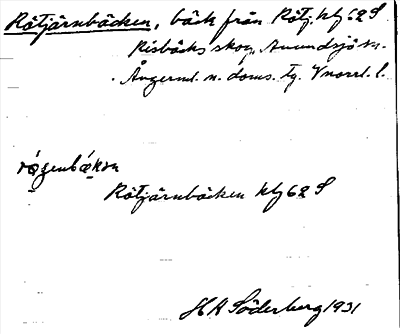 Rötjärnbäcken, bäck från Rötj. klj 62 S
Risbäcks skog, Anundsjö sn.
Ångerml. n. doms. tg. Vnorrl. l.
Rötjärnbäcken klj 62 S
HA Söderberg 1931